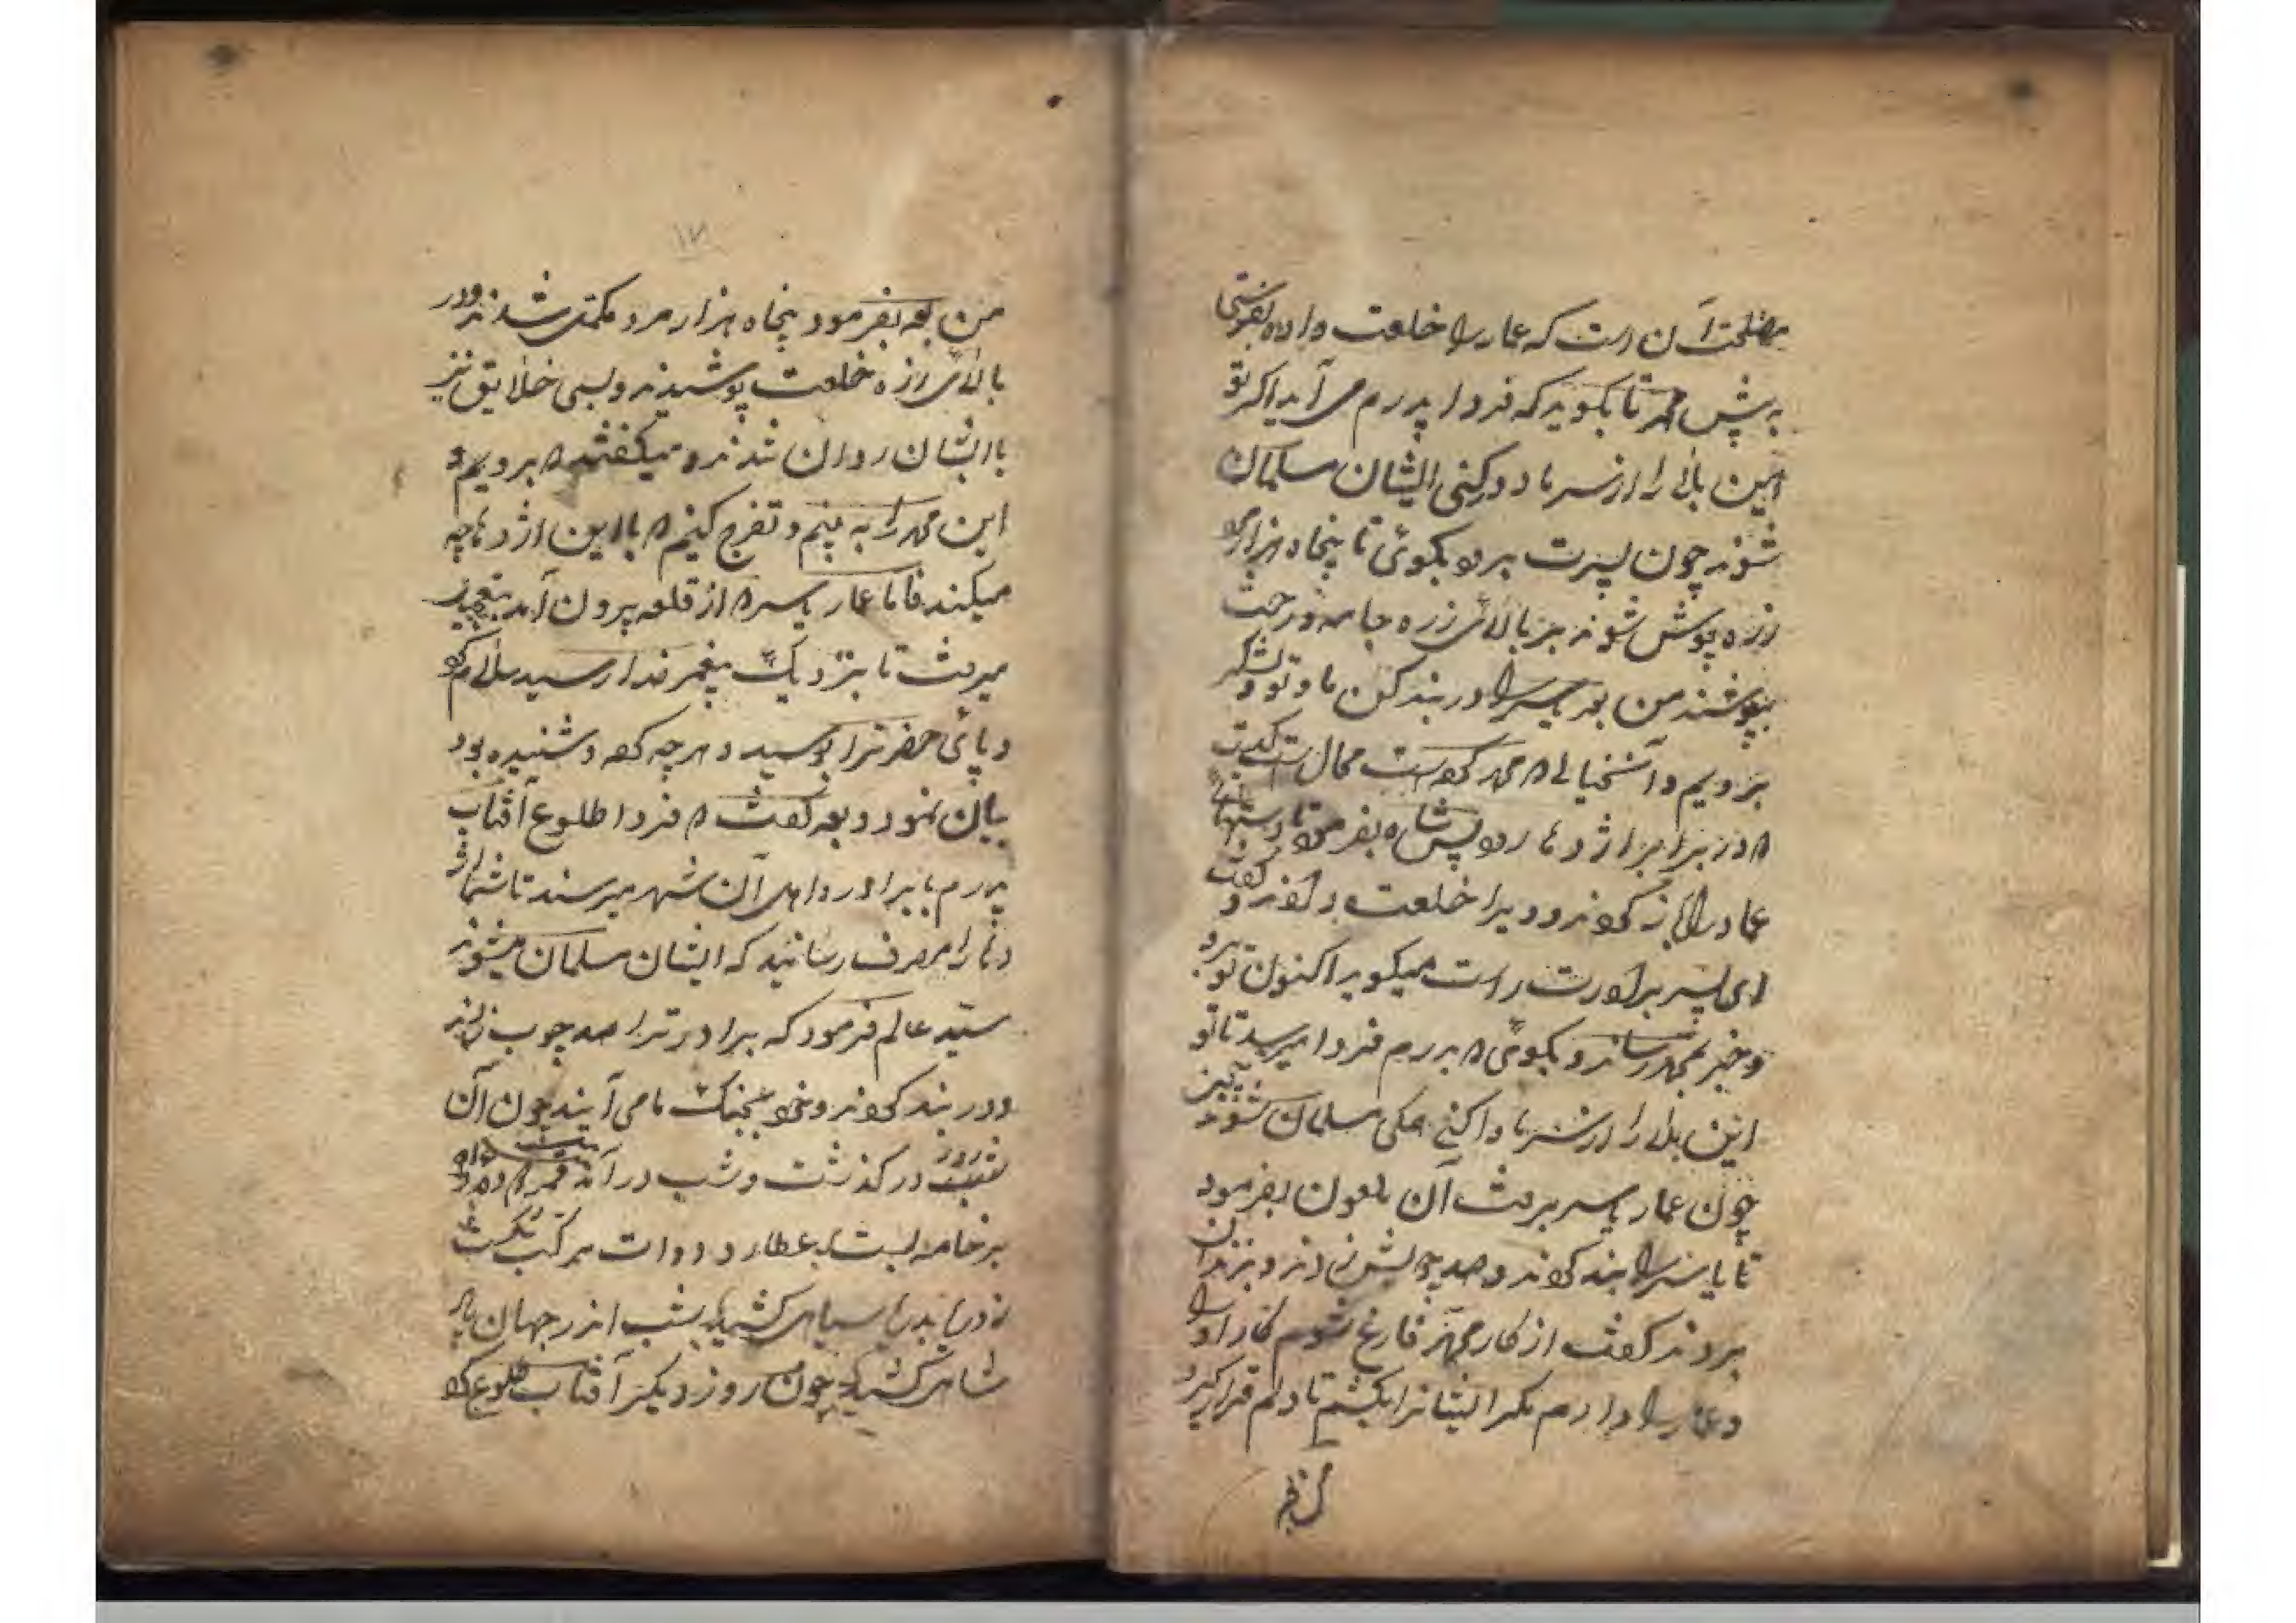 مصلحت آن است که عمار را خلعت داده بفرستی
به پیش محمد تا بگوید که فردا پدرم می آید اگر تو
این بلا را از سر ما دور کنی ایشان مسلمان
شوند چون پسرت برود بگوئی تا پنجاه هزار مرد
زره پوش شوند بر بالائی زره جامه و رخت
بپوشند من بعد یاسر را در بند کن ما و تو و لشکر
برویم و آن محمد محال است
در برابر اژدها بفرمود تا
عمار را باز کردند و ویرا خلعت دادند و گفت
ای پسر برادرت راست میگوید اکنون تو برو
و خبر بمحمد رساند و بگوئی پدرم فردا میرسد تا تو
این بلا را از سر ما وا کنی همگی مسلمان شوند
چون عمار یاسر برفت آن ملعون بفرمود
تا یاسر را بند کردند و صد چوبش زدند و بزندان
بردند گفت از کار محمد فارغ شوم کار او را
و عمار را دارم مگر ایشانرا بکشم تا دلم قرار گیرد
۱۷
من بعد بفرمود پنجاه هزار مرد مکمل شدند و در
بالائی زره خلعت پوشیدند و بسی خلایق نیز
با ایشان روان شدند و میگفتند برویم و
این محمد را به بینم و تفرج کنیم با این اژدها چه
میکند فاما عمار یاسر از قلعه بیرون آمد بتعجیل
میرفت تا بنزدیک پیغمبر خدا رسید سلام کرد
و پائی حضرترا بوسید و هرچه گفته و شنیده بود
بیان نمود و بعد گفت فردا طلوع آفتاب
پدرم با برادر و اهل آن شهر میرسند تا شما
را رسانید که ایشان مسلمان میشوند
سید عالم فرمود که برادر ترا صد چوب زدند
و در بند کردند و خود بجنگ ما می آیند چون آن
روز در گذشت و شب در آمد بیت
بر خامه ببست عطارد دوات مرکب
سیاهی کشید شب اندر جهان
شاهی کشید چون روز دیگر آفتاب طلوع کرد